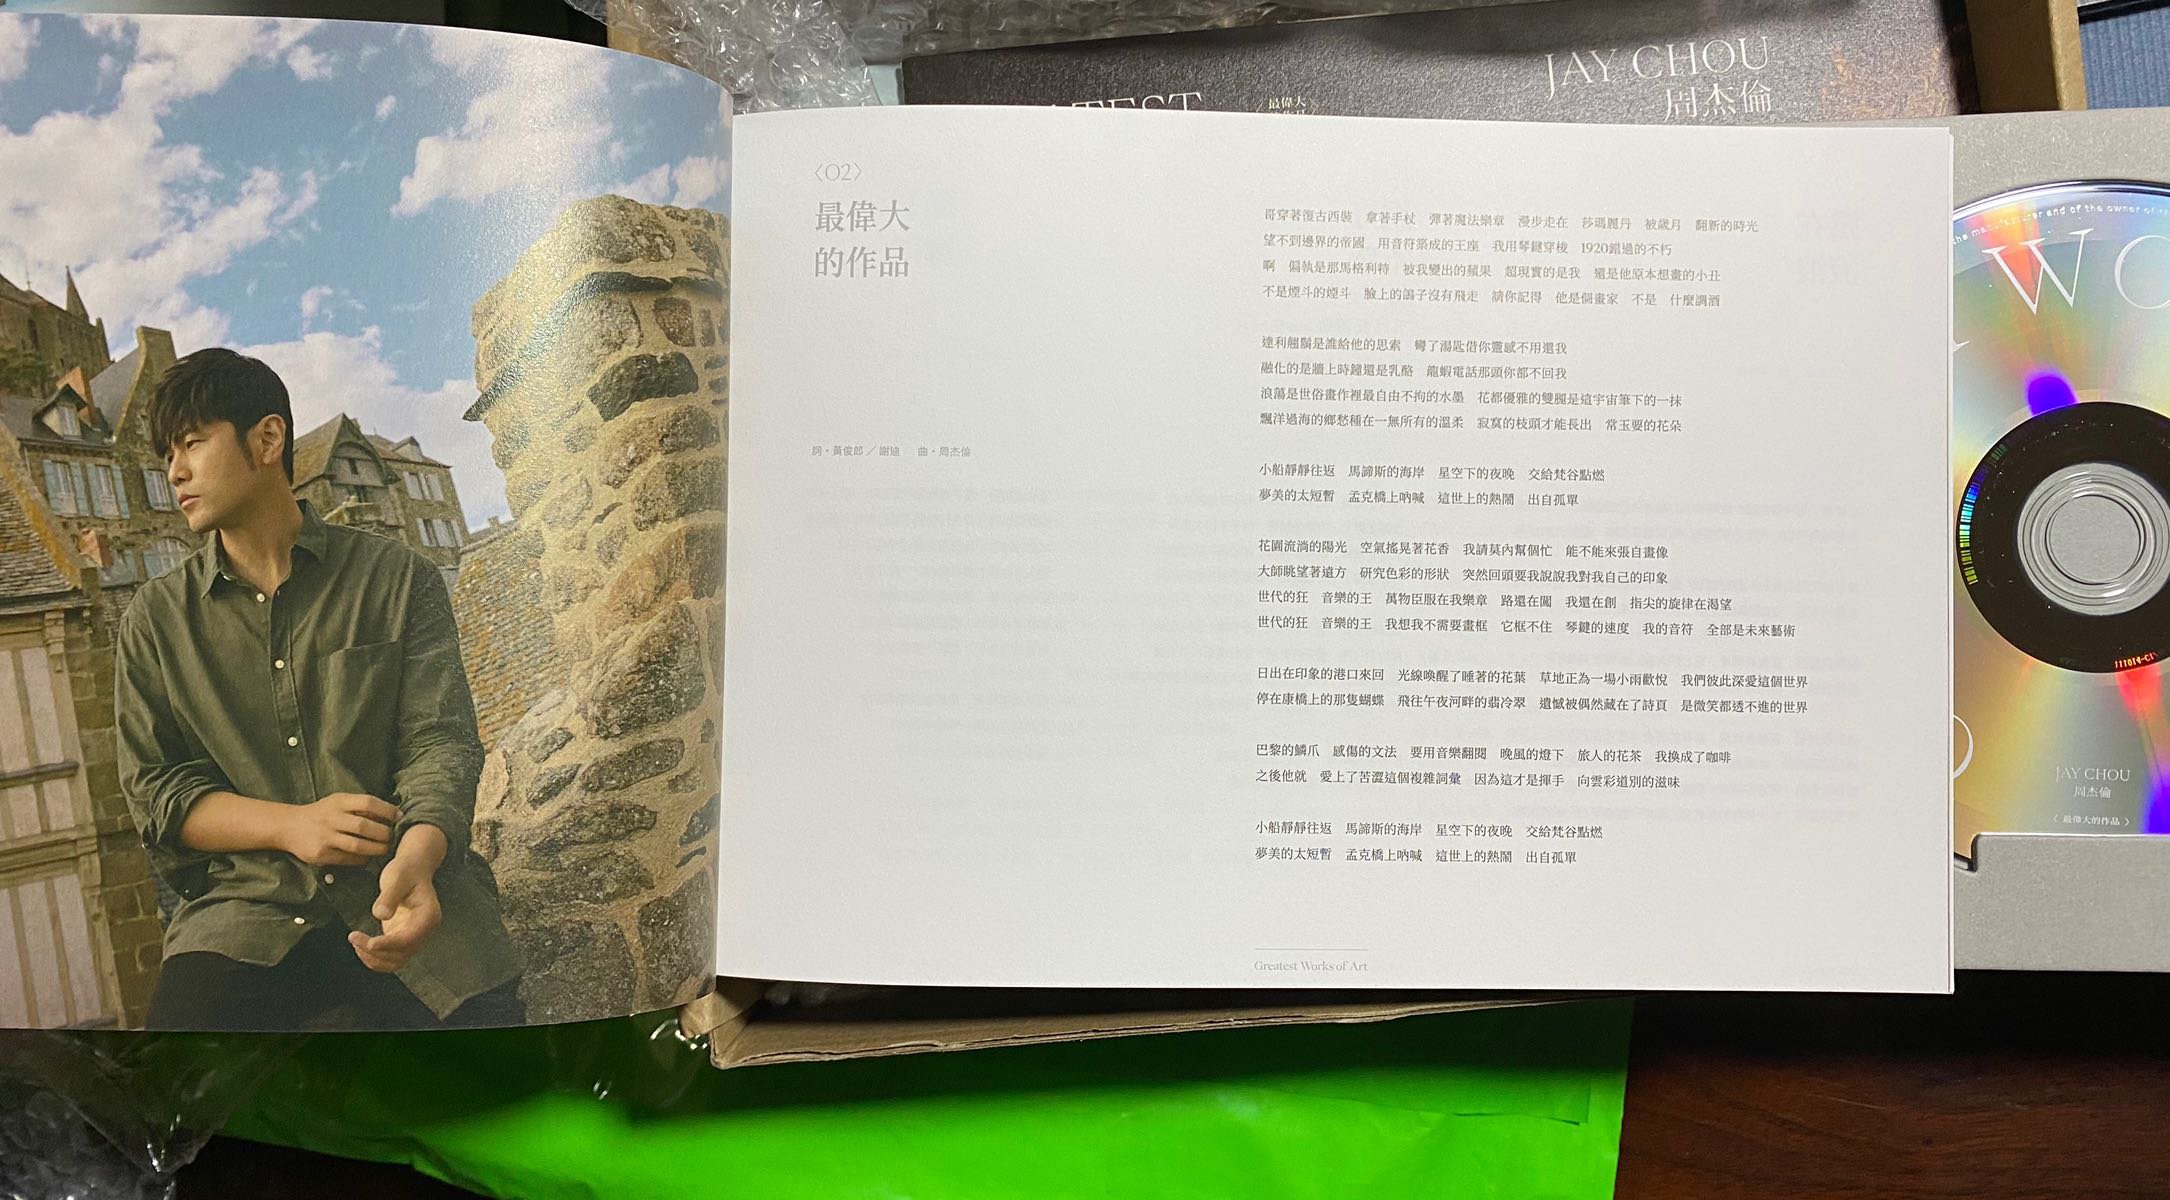 JAY CHOU
周杰倫
ATEST
最偉大
〈02〉
最偉大
的作品
詞・黃俊郎／謝迪　曲・周杰倫
哥穿著復古西裝　拿著手杖　彈著魔法樂章　漫步走在　莎瑪麗丹　被歲月　翻新的時光
望不到邊界的帝國　用音符築成的王座　我用琴鍵穿梭　1920錯過的不朽
啊　偏執是那馬格利特　被我變出的蘋果　超現實的是我　還是他原本想畫的小丑
不是煙斗的煙斗　臉上的鴿子沒有飛走　請你記得　他是個畫家　不是　什麼調酒
達利翹鬍是誰給他的思索　彎了湯匙借你靈感不用還我
融化的是牆上時鐘還是乳酪　龍蝦電話那頭你都不回我
浪蕩是世俗畫作裡最自由不拘的水墨　花都優雅的雙腿是這宇宙筆下的一抹
飄洋過海的鄉愁種在一無所有的溫柔　寂寞的枝頭才能長出　常玉要的花朵
小船靜靜往返　馬諦斯的海岸　星空下的夜晚　交給梵谷點燃
夢美的太短暫　孟克橋上吶喊　這世上的熱鬧　出自孤單
花園流淌的陽光　空氣搖晃著花香　我請莫內幫個忙　能不能來張自畫像
大師眺望著遠方　研究色彩的形狀　突然回頭要我說說我對我自己的印象
世代的狂　音樂的王　萬物臣服在我樂章　路還在闖　我還在創　指尖的旋律在渴望
世代的狂　音樂的王　我想我不需要畫框　它框不住　琴鍵的速度　我的音符　全部是未來藝術
日出在印象的港口來回　光線喚醒了睡著的花葉　草地正為一場小雨歡悅　我們彼此深愛這個世界
停在康橋上的那隻蝴蝶　飛往午夜河畔的翡冷翠　遺憾被偶然藏在了詩頁　是微笑都透不進的世界
巴黎的鱗爪　感傷的文法　要用音樂翻閱　晚風的燈下　旅人的花茶　我換成了咖啡
之後他就　愛上了苦澀這個複雜詞彙　因為這才是揮手　向雲彩道別的滋味
小船靜靜往返　馬諦斯的海岸　星空下的夜晚　交給梵谷點燃
夢美的太短暫　孟克橋上吶喊　這世上的熱鬧　出自孤單
Greatest Works of Art
and of the owner of
WO
JAY CHOU
周杰倫
〈最偉大的作品〉